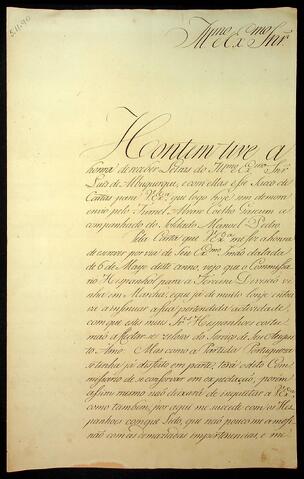 Illmo. e Exmo. Snr.
Hontem tive a
honra de receber Letras do Illmo. e Exmo. Snr.
Luis de Albuquerque, e com ellas esse Saco de
Cartas para V. Exa. que logo hoje sem demora
envio pelo Furriel Alvaro Coelho
companhado do Soldado Manoel Pedro.
Pela Carta que V. Exa. me fez a honra
de escrever por via de seu Exmo. Irmão datada
de 6 de Mayo deste anno, vejo que o Commissa
rio Hespanhol para a Terceira Divizão vi
nha em Marcha; e que já de muito longe entrou
va a insinuar a sua pertendida actividade,
com que estes mais Snrs. Hespanhoes costu
mão affectar o zelo do serviço de seu Augusto
Amo. Mas como a Partida Portugueza
se tinha já disposto em parte, terá o dito Com
missario de se conservar em expectação, porém
assim mesmo não deixará de inquietar a V. Exa.
como tambem por aqui me sucede com os Hes
panhoes confinantes, que não pouco me amofi
não com as demaziadas impertinencias, e mi